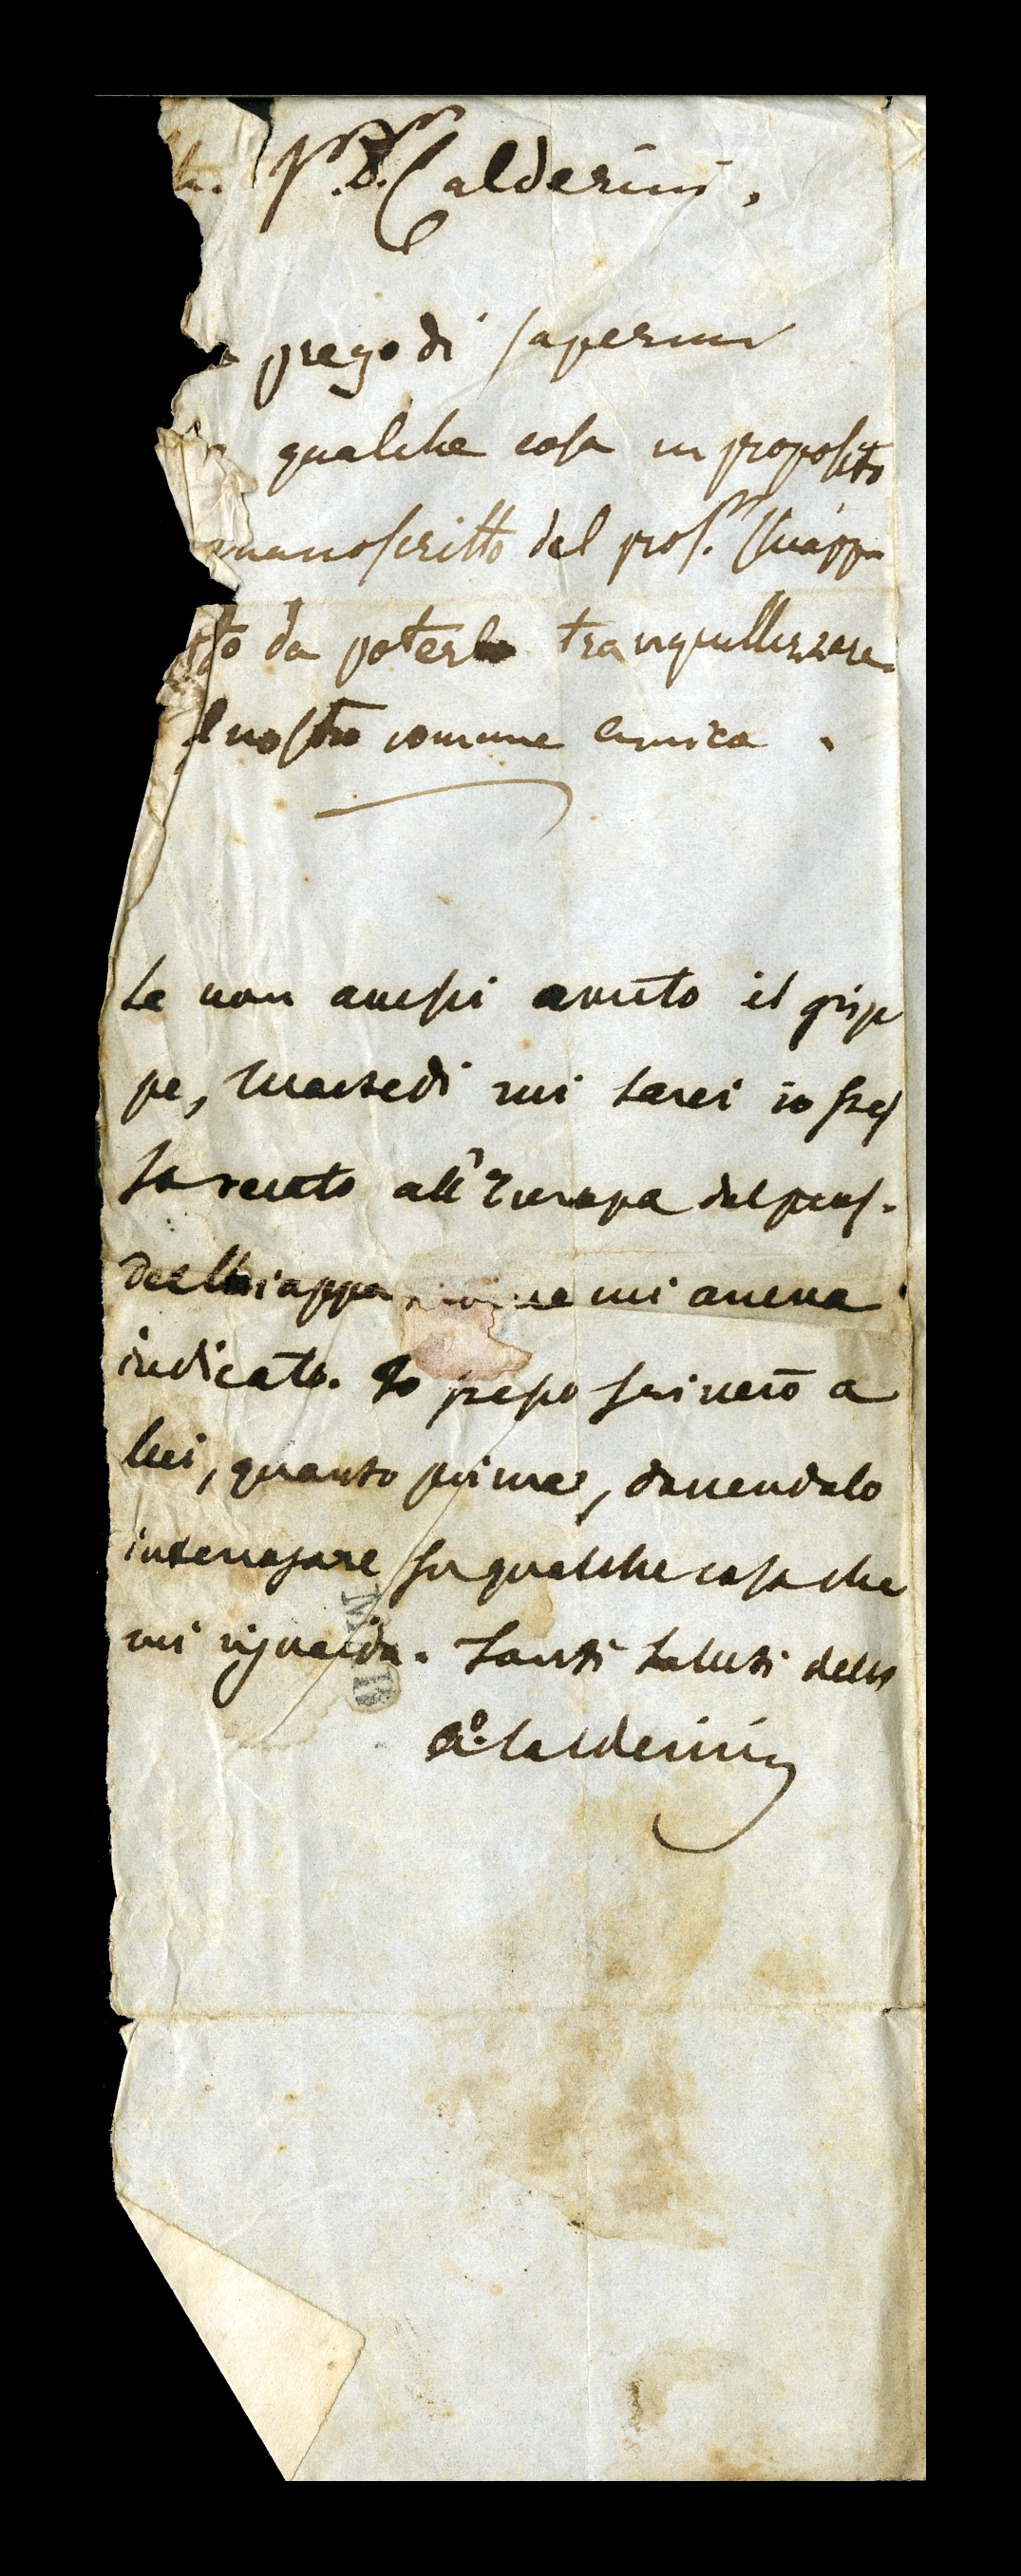 P. D.r Calderini.
prego di sapermi
qualche cosa in proposito
manoscritto del prof.r Chiappa
da poterlo tranquillizzare
l nostro comune amico.
Se non avessi avuto il grip
pe, Martedì mi sarei io stes
so recato all'Europa dal prof.
Del Chiappa mi aveva
indicato. Io stesso scriverò a
lui, quanto prima, dovendolo
interrogare su qualche cosa che
mi riguarda. Tanti saluti dello
Calderini